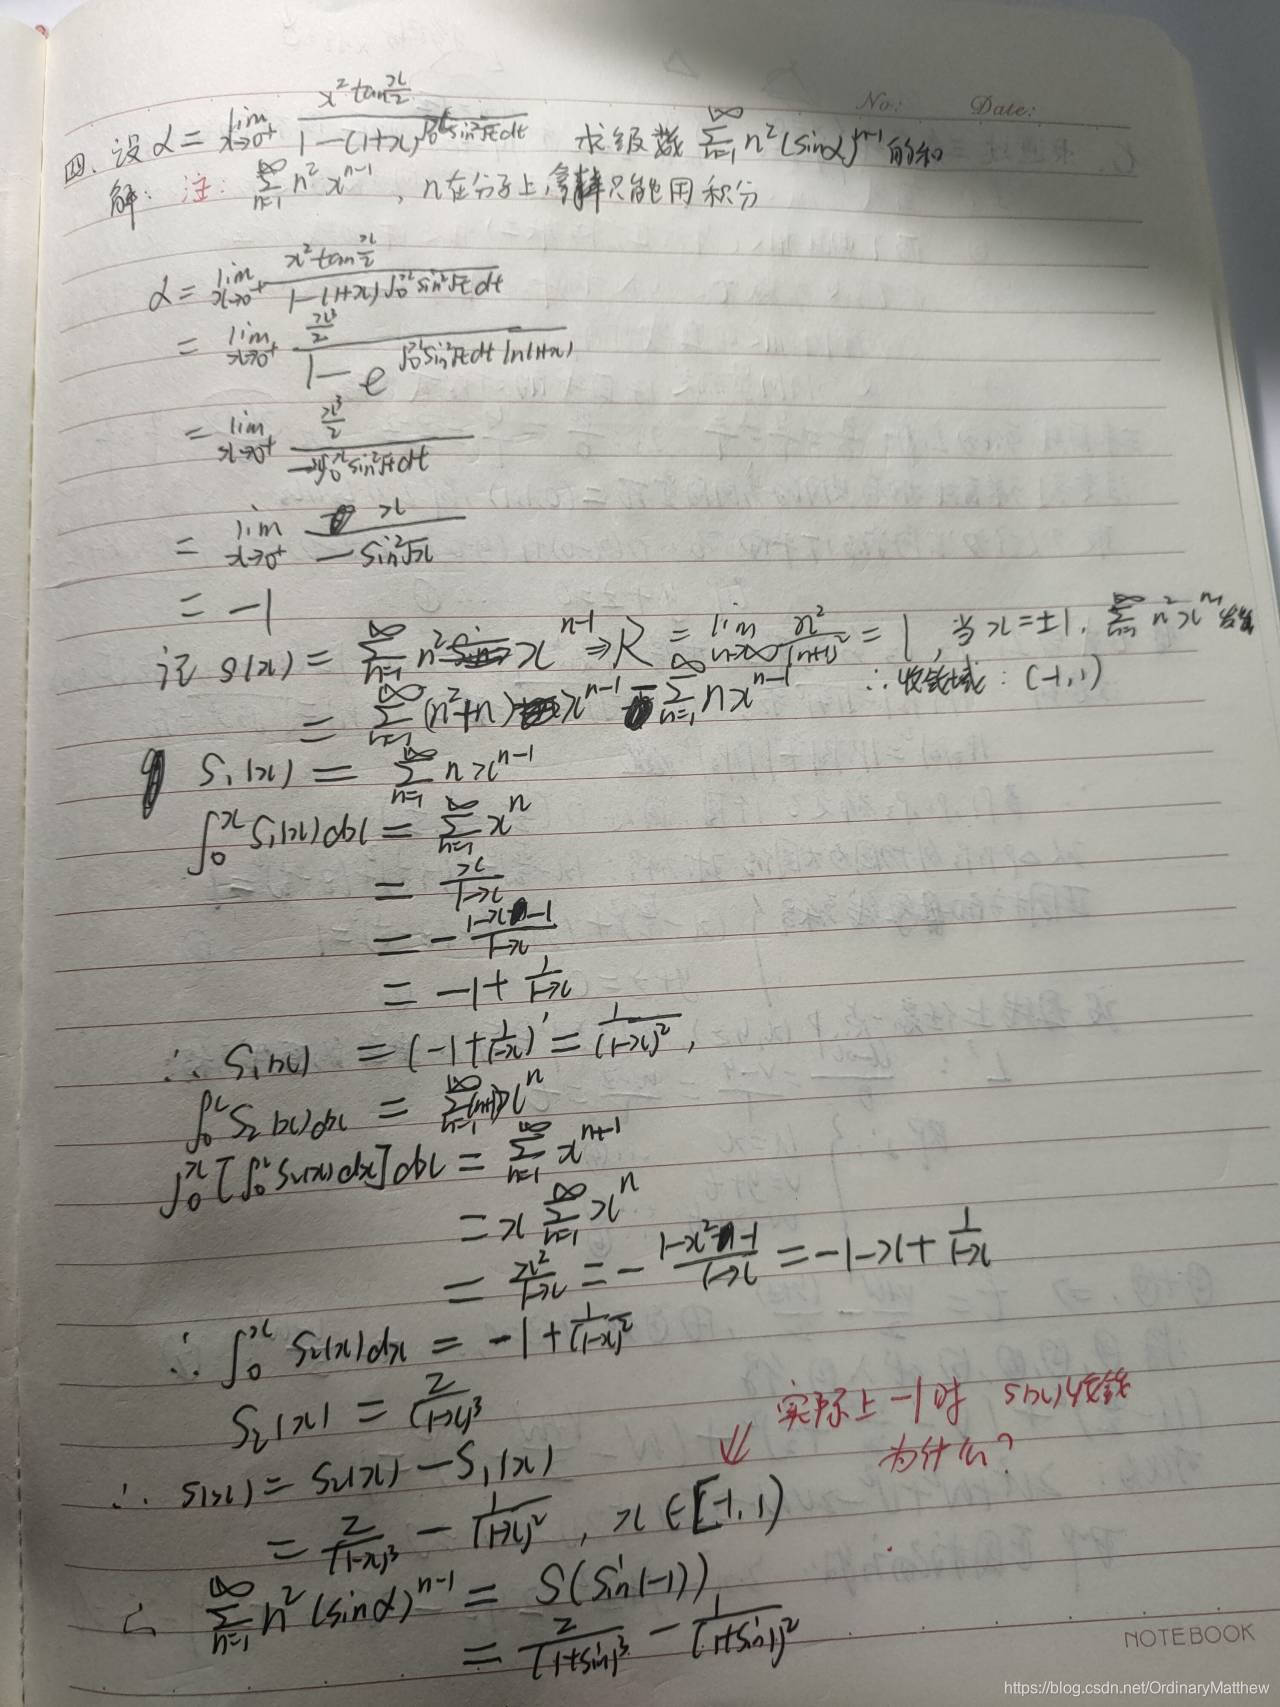 No: Date:
四. 设 α = lim_{x→0⁺} \frac{x² tan\frac{x}{2}}{1-(1+x)^{∫_0^x sin²√t dt}} 求级数 ∑_{n=1}^∞ n²(sinα)^{n-1} 的和
解: 注: ∑_{n=1}^∞ n² x^{n-1} , n在分子上, 只能用积分
α = lim_{x→0⁺} \frac{x² tan\frac{x}{2}}{1-(1+x)^{∫_0^x sin²√t dt}}
= lim_{x→0⁺} \frac{\frac{x³}{2}}{1-e^{∫_0^x sin²√t dt ln(1+x)}}
= lim_{x→0⁺} \frac{\frac{x³}{2}}{-x∫_0^x sin²√t dt}
= lim_{x→0⁺} \frac{x}{-sin²√x}
= -1
记 S(x) = ∑_{n=1}^∞ n² x^{n-1} ⇒ R = lim_{n→∞} \frac{n²}{(n+1)²} = 1, 当x=±1, ∑_{n=1}^∞ n² x^{n-1} 发散
= ∑_{n=1}^∞ (n²+n) x^{n-1} - ∑_{n=1}^∞ n x^{n-1} ∴ 收敛域: (-1,1)
S₁(x) = ∑_{n=1}^∞ n x^{n-1}
∫_0^x S₁(x)dx = ∑_{n=1}^∞ x^n
= \frac{x}{1-x}
= -\frac{1-x-1}{1-x}
= -1+\frac{1}{1-x}
∴ S₁(x) = (-1+\frac{1}{1-x})' = \frac{1}{(1-x)²},
∫_0^x S₂(x)dx = ∑_{n=1}^∞ (n+1)x^n
∫_0^x [∫_0^x S₂(x)dx]dx = ∑_{n=1}^∞ x^{n+1}
= x∑_{n=1}^∞ x^n
= \frac{x²}{1-x} = -\frac{1-x²-1}{1-x} = -1-x+\frac{1}{1-x}
∴ ∫_0^x S₂(x)dx = -1+\frac{1}{(1-x)²}
S₂(x) = \frac{2}{(1-x)³}
实际上-1时 S(x)收敛
为什么?
∴ S(x) = S₂(x) - S₁(x)
= \frac{2}{(1-x)³} - \frac{1}{(1-x)²}, x∈[-1,1)
∴ ∑_{n=1}^∞ n²(sinα)^{n-1} = S(sin(-1))
= \frac{2}{(1+sin1)³} - \frac{1}{(1+sin1)²}
NOTEBOOK
https://blog.csdn.net/OrdinaryMatthew